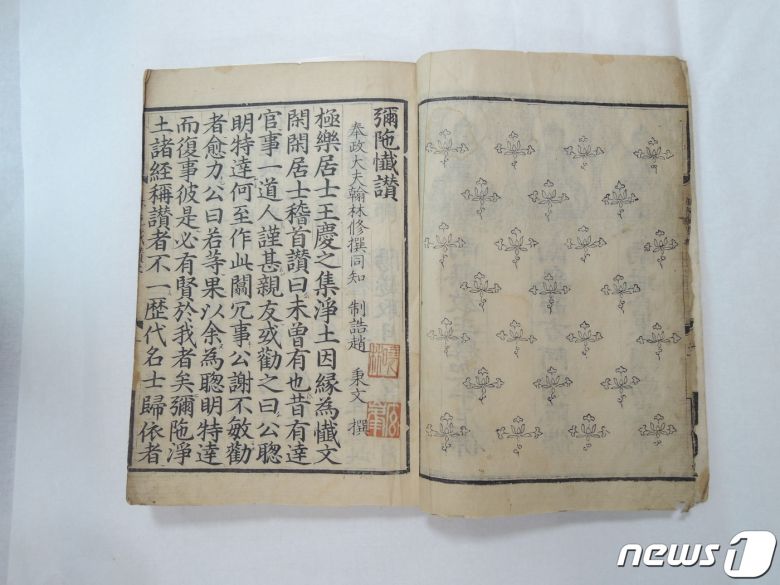 彌陁懺讃
奉政大夫翰林修撰同知 制誥趙 秉文 撰
極樂居士王慶之集淨土因縁為懺文
閑閑居士稽首讃曰未曾有也昔有達
官事一道人謹甚親友或勸之曰公聦
明特達何至作此闒冗事公謝不敏勸
者愈力公曰若等果以余為聦明特達
而復事彼是必有賢於我者矣彌陁淨
土諸経稱讃者不一歴代名士歸依者
news1